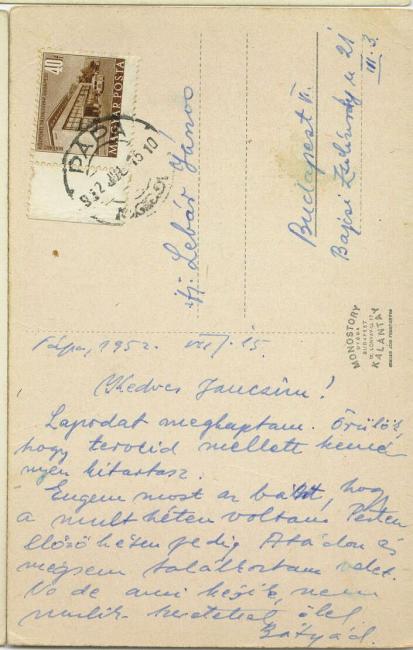 40f
MAGYAR POSTA
PÁPA
ifj. Lebár János
Budapest VI.
Bajcsi Zsilinszky u 21
III. 3.
MONOSTORY
BUDAPEST
KALANTAY
Pápa, 1952. VIII. 15.
Kedves Jancsim!
Lapodat megkaptam. Örülök,
hogy terveid mellett kemé
nyen kitartasz.
Engem most az bánt, hogy
a mult héten voltam Pesten
előző héten pedig Atádon és
mégsem találkoztam veled.
No de ami késik, nem
mulik szeretettel ölel
Bátyád.